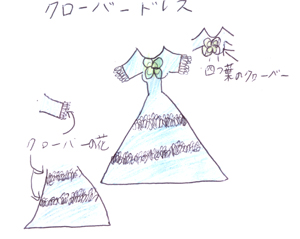 クローバードレス
四つ葉のクローバー
クローバーの花